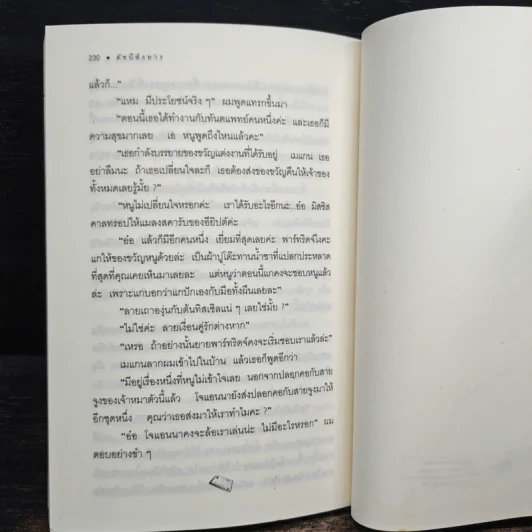 230 • ดัชนีสังหาร
แล้วก็..."
"แหม มีประโยชน์จริง ๆ" ผมพูดแทรกขึ้นมา
"ตอนนี้เธอได้ทำงานกับทันตแพทย์คนหนึ่งค่ะ และเธอก็มี
ความสุขมากเลย เอ หนูพูดถึงไหนแล้วคะ"
"เธอกำลังบรรยายของขวัญแต่งงานที่ได้รับอยู่ เมแกน เธอ
อย่าลืมนะ ถ้าเธอเปลี่ยนใจละก็ เธอต้องส่งของขวัญคืนให้เจ้าของ
ทั้งหมดเลยรู้มั้ย ?"
"หนูไม่เปลี่ยนใจหรอกค่ะ เราได้รับอะไรอีกนะ อ๋อ มิสซิส
คาลทรอปให้แมลงสคารับของอียิปต์ค่ะ
"อ๋อ แล้วก็มีอีกคนหนึ่ง เยี่ยมที่สุดเลยค่ะ พาร์ทริดจ์ไงคะ
แกให้ของขวัญหนูด้วยล่ะ เป็นผ้าปูโต๊ะทานน้ำชาที่แปลกประหลาด
ที่สุดที่คุณเคยเห็นมาเลยละ แต่หนูว่าตอนนี้แกคงจะชอบหนูแล้ว
ล่ะ เพราะแกบอกว่าแกปักเองกับมือทั้งผืนเลยละ"
"ลายเถาองุ่นกับต้นทิสเซิลแน่ ๆ เลยใช่มั้ย ?"
"ไม่ใช่ค่ะ ลายเงื่อนคู่รักต่างหาก"
"เหรอ ถ้าอย่างนั้นยายพาร์ทริดจ์คงจะเริ่มชอบเราแล้วล่ะ"
เมแกนลากผมเข้าไปในบ้าน แล้วเธอก็พูดอีกว่า
"มีอยู่เรื่องหนึ่งที่หนูไม่เข้าใจเลย นอกจากปลอกคอกับสาย
จูงของเจ้าหมาตัวนี้แล้ว โจแอนนายังส่งปลอกคอกับสายจูงมาให้
อีกชุดหนึ่ง คุณว่าเธอส่งมาให้เราทำไมคะ ?"
"อ๋อ โจแอนนาคงจะล้อเราเล่นน่ะ ไม่มีอะไรหรอก" ผม
ตอบอย่างขำ ๆ